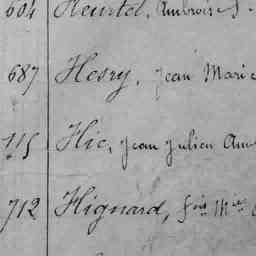 604 Heurtel, Ambroise J.
687 Hesry, Jean Marie
115 Hic, Jean Julien
712 Hignard, fois Mie